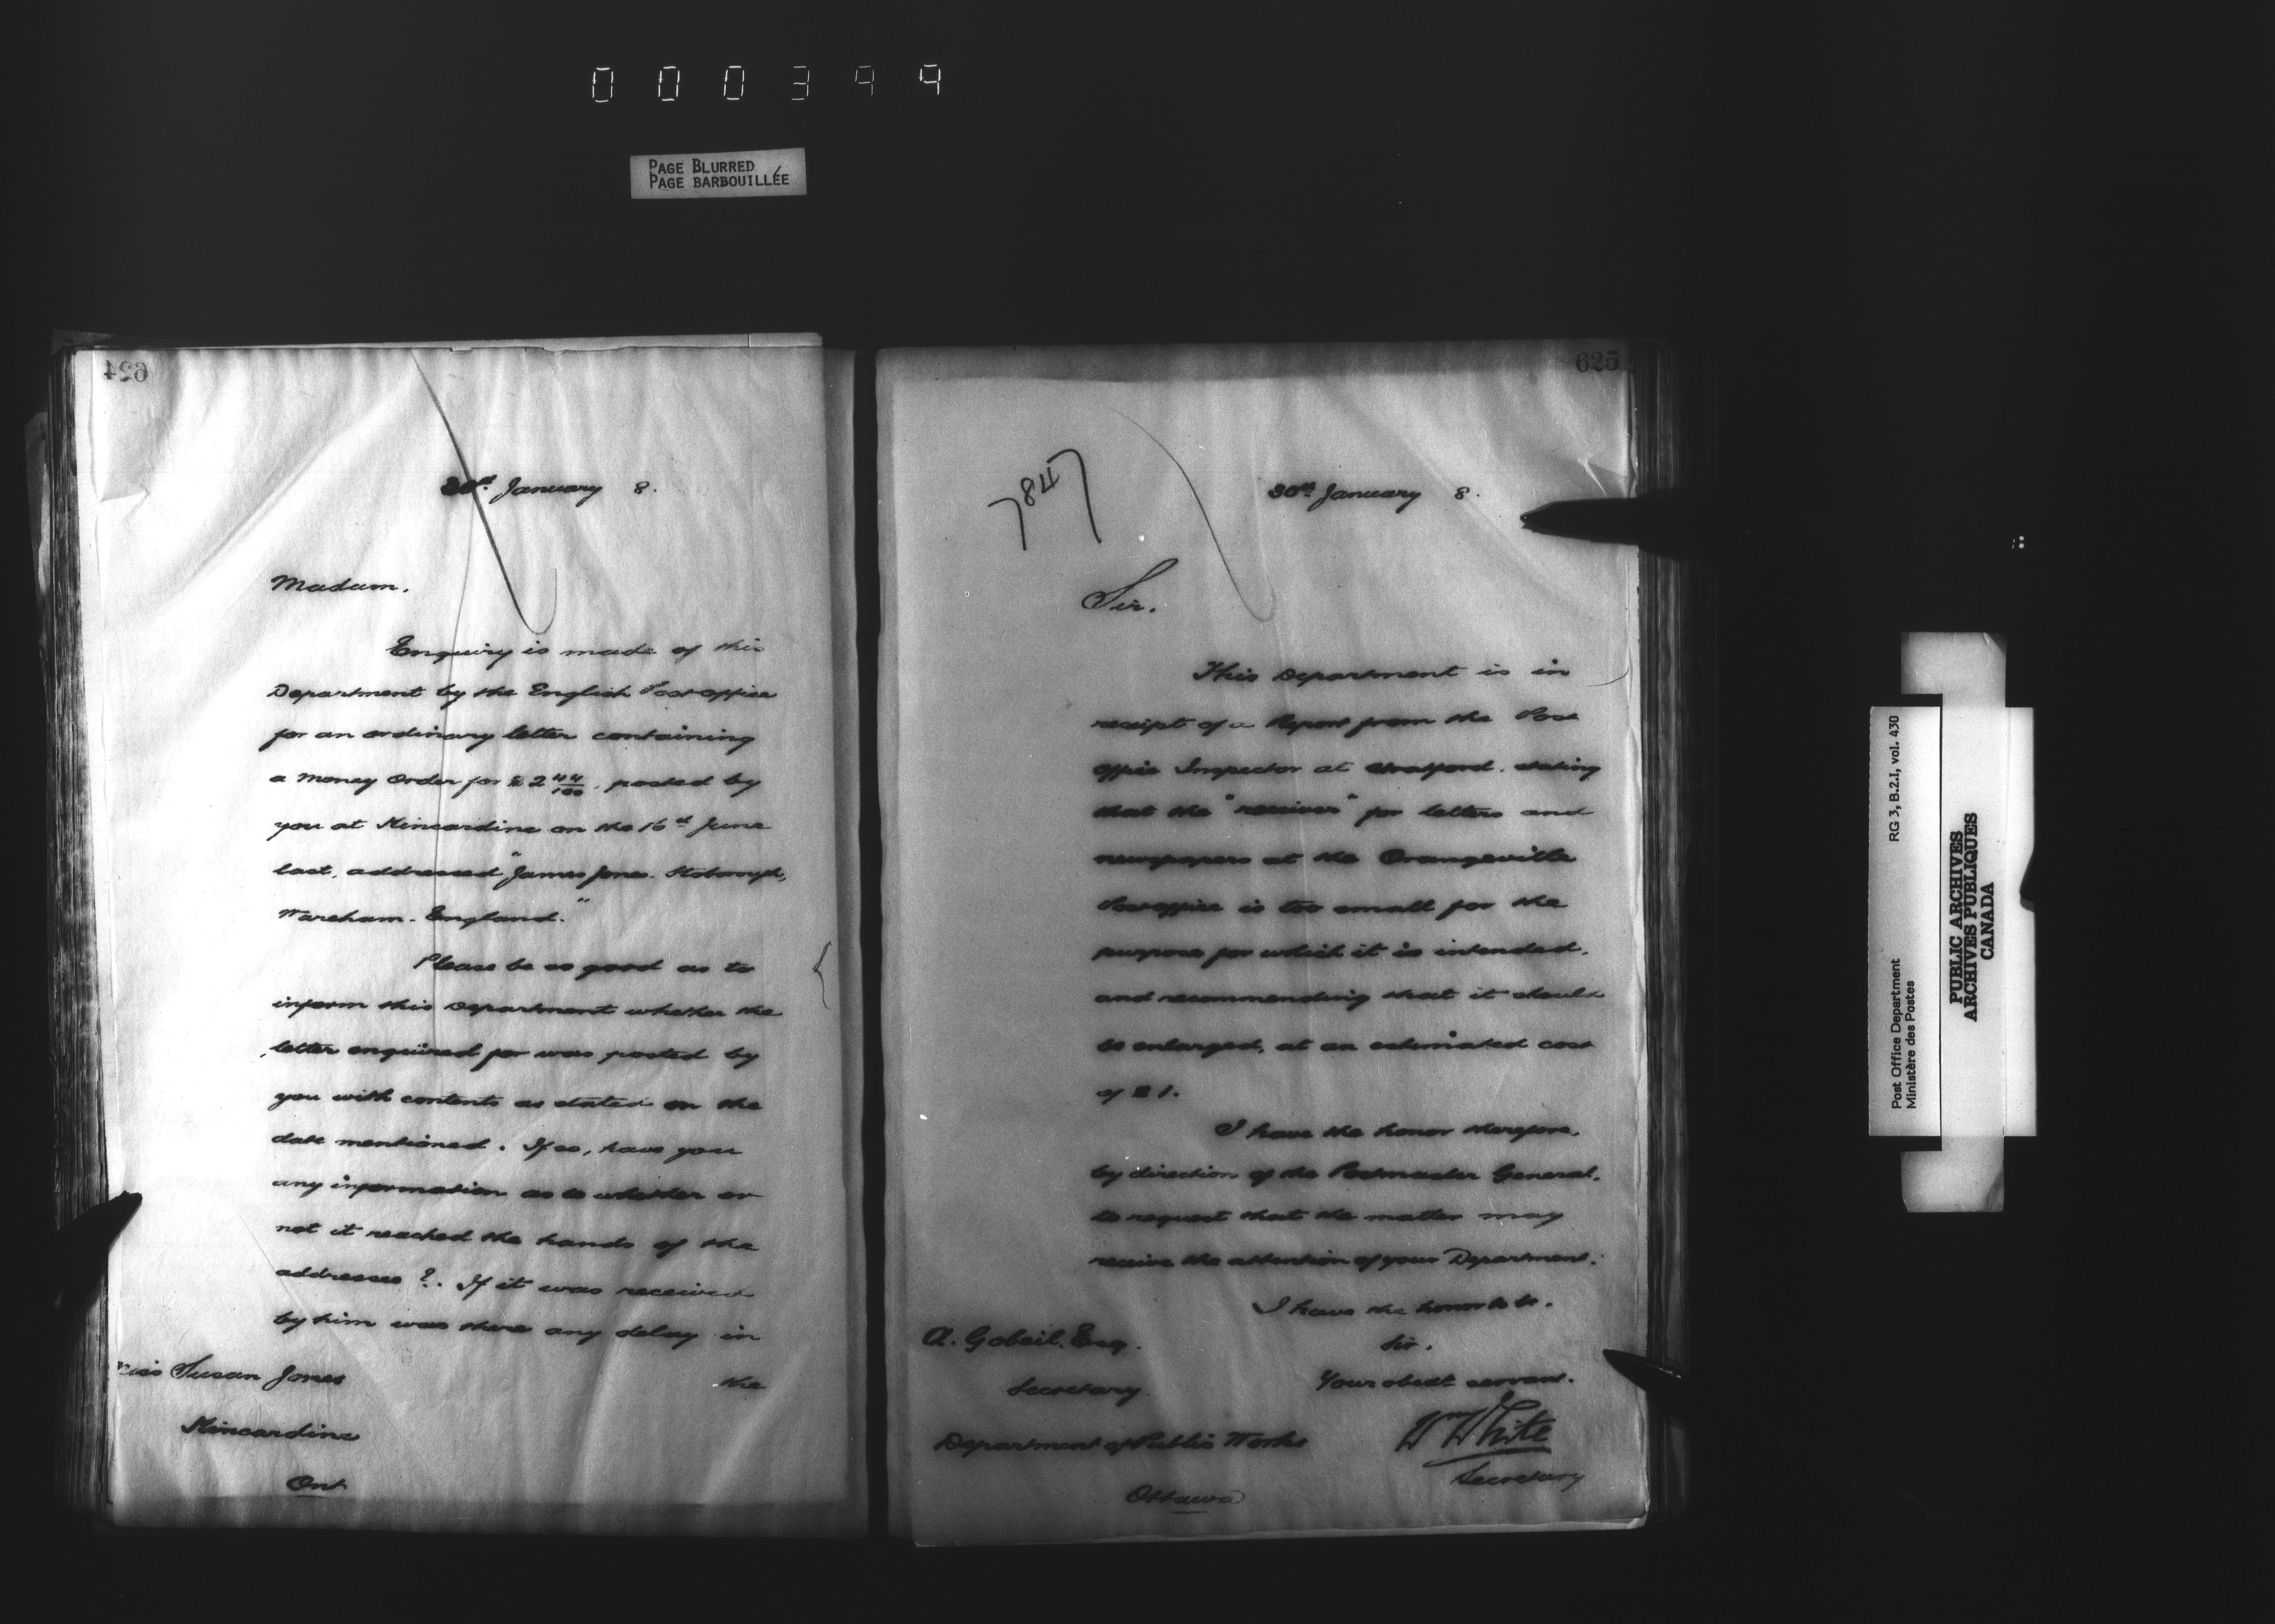 000399
PAGE BLURRED
PAGE BARBOUILLÉE
624
30th January 8.
Madam.
Enquiry is made of this
Department by the English Post office
for an ordinary letter containing
a Money Order for $2 44/100, posted by
you at Kincardine on the 16th June
last, addressed "James Jones. Stoborough,
Wareham. England."
Please be so good as to
inform this Department whether the
letter enquired for was posted by
you with contents as stated on the
date mentioned. If so, have you
any information as to whether or
not it reached the hands of the
addressee?. If it was received
by him was there any delay in
the
Miss Susan Jones
Kincardine
Ont
625
7847
30th January 8.
Sir.
This Department is in
receipt of a Report from the Post
office Inspector at Stratford. stating
that the "receiver" for letters and
newspapers at the Orangeville
Post office is too small for the
purpose for which it is intended.
and recommending that it should
be enlarged, at an estimated cost
of $1.
I have the honor therefore,
by direction of the Postmaster General,
to request that the matter may
receive the attention of your Department.
I have the honor to be.
Sir.
Your obedt servant.
Wm White
Secretary
A. Gobeil. Esq.
Secretary
Department of Public Works
Ottawa
Post Office Department RG 3, B.2.I, vol. 430
Ministère des Postes
PUBLIC ARCHIVES
ARCHIVES PUBLIQUES
CANADA